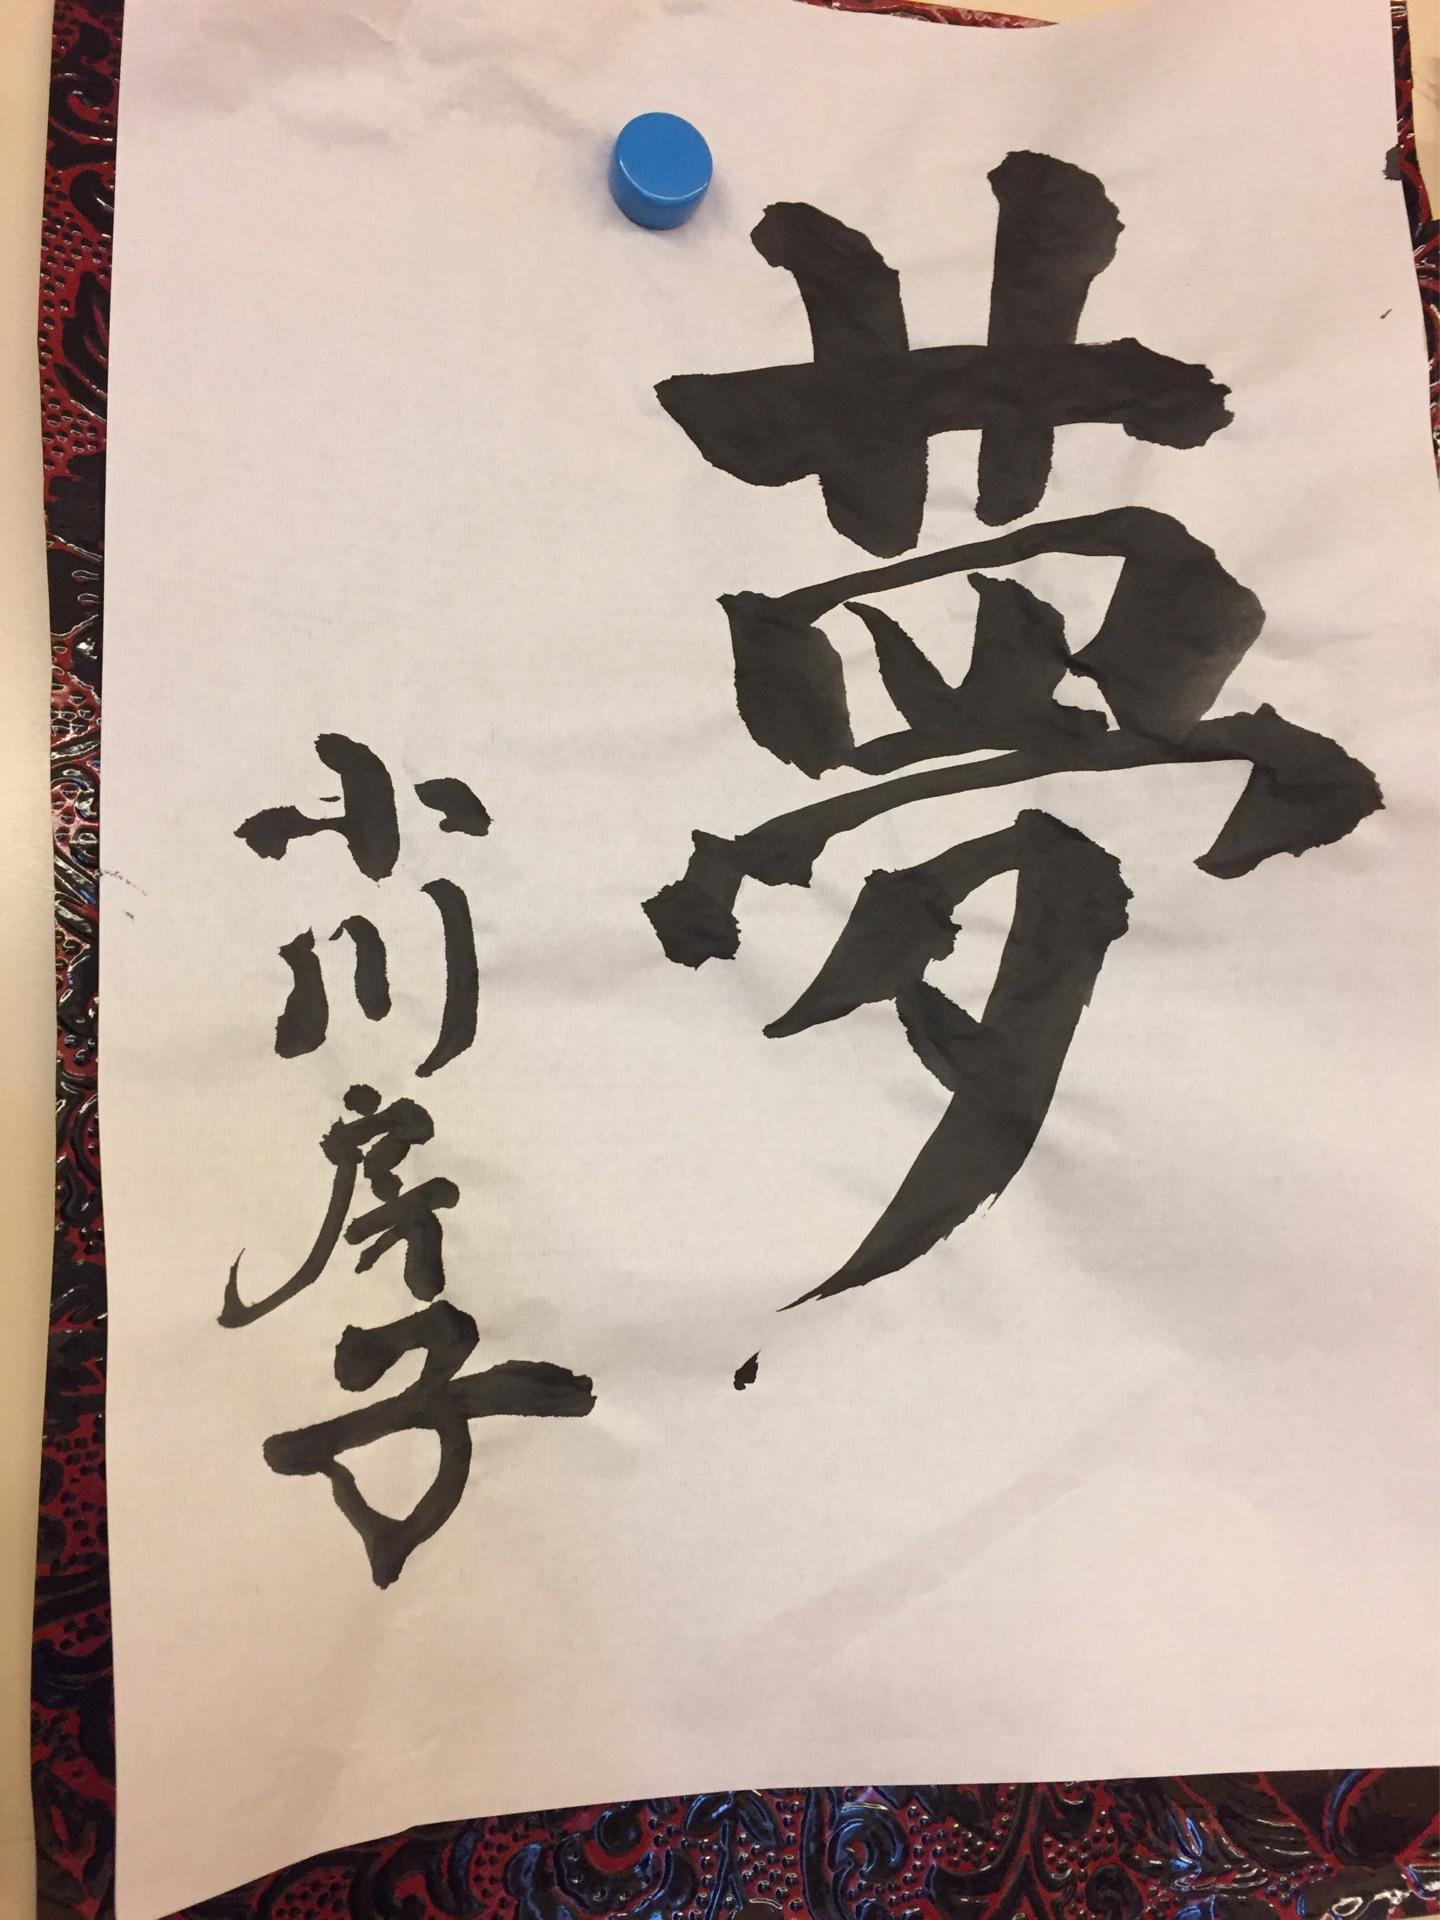 夢
小川房子